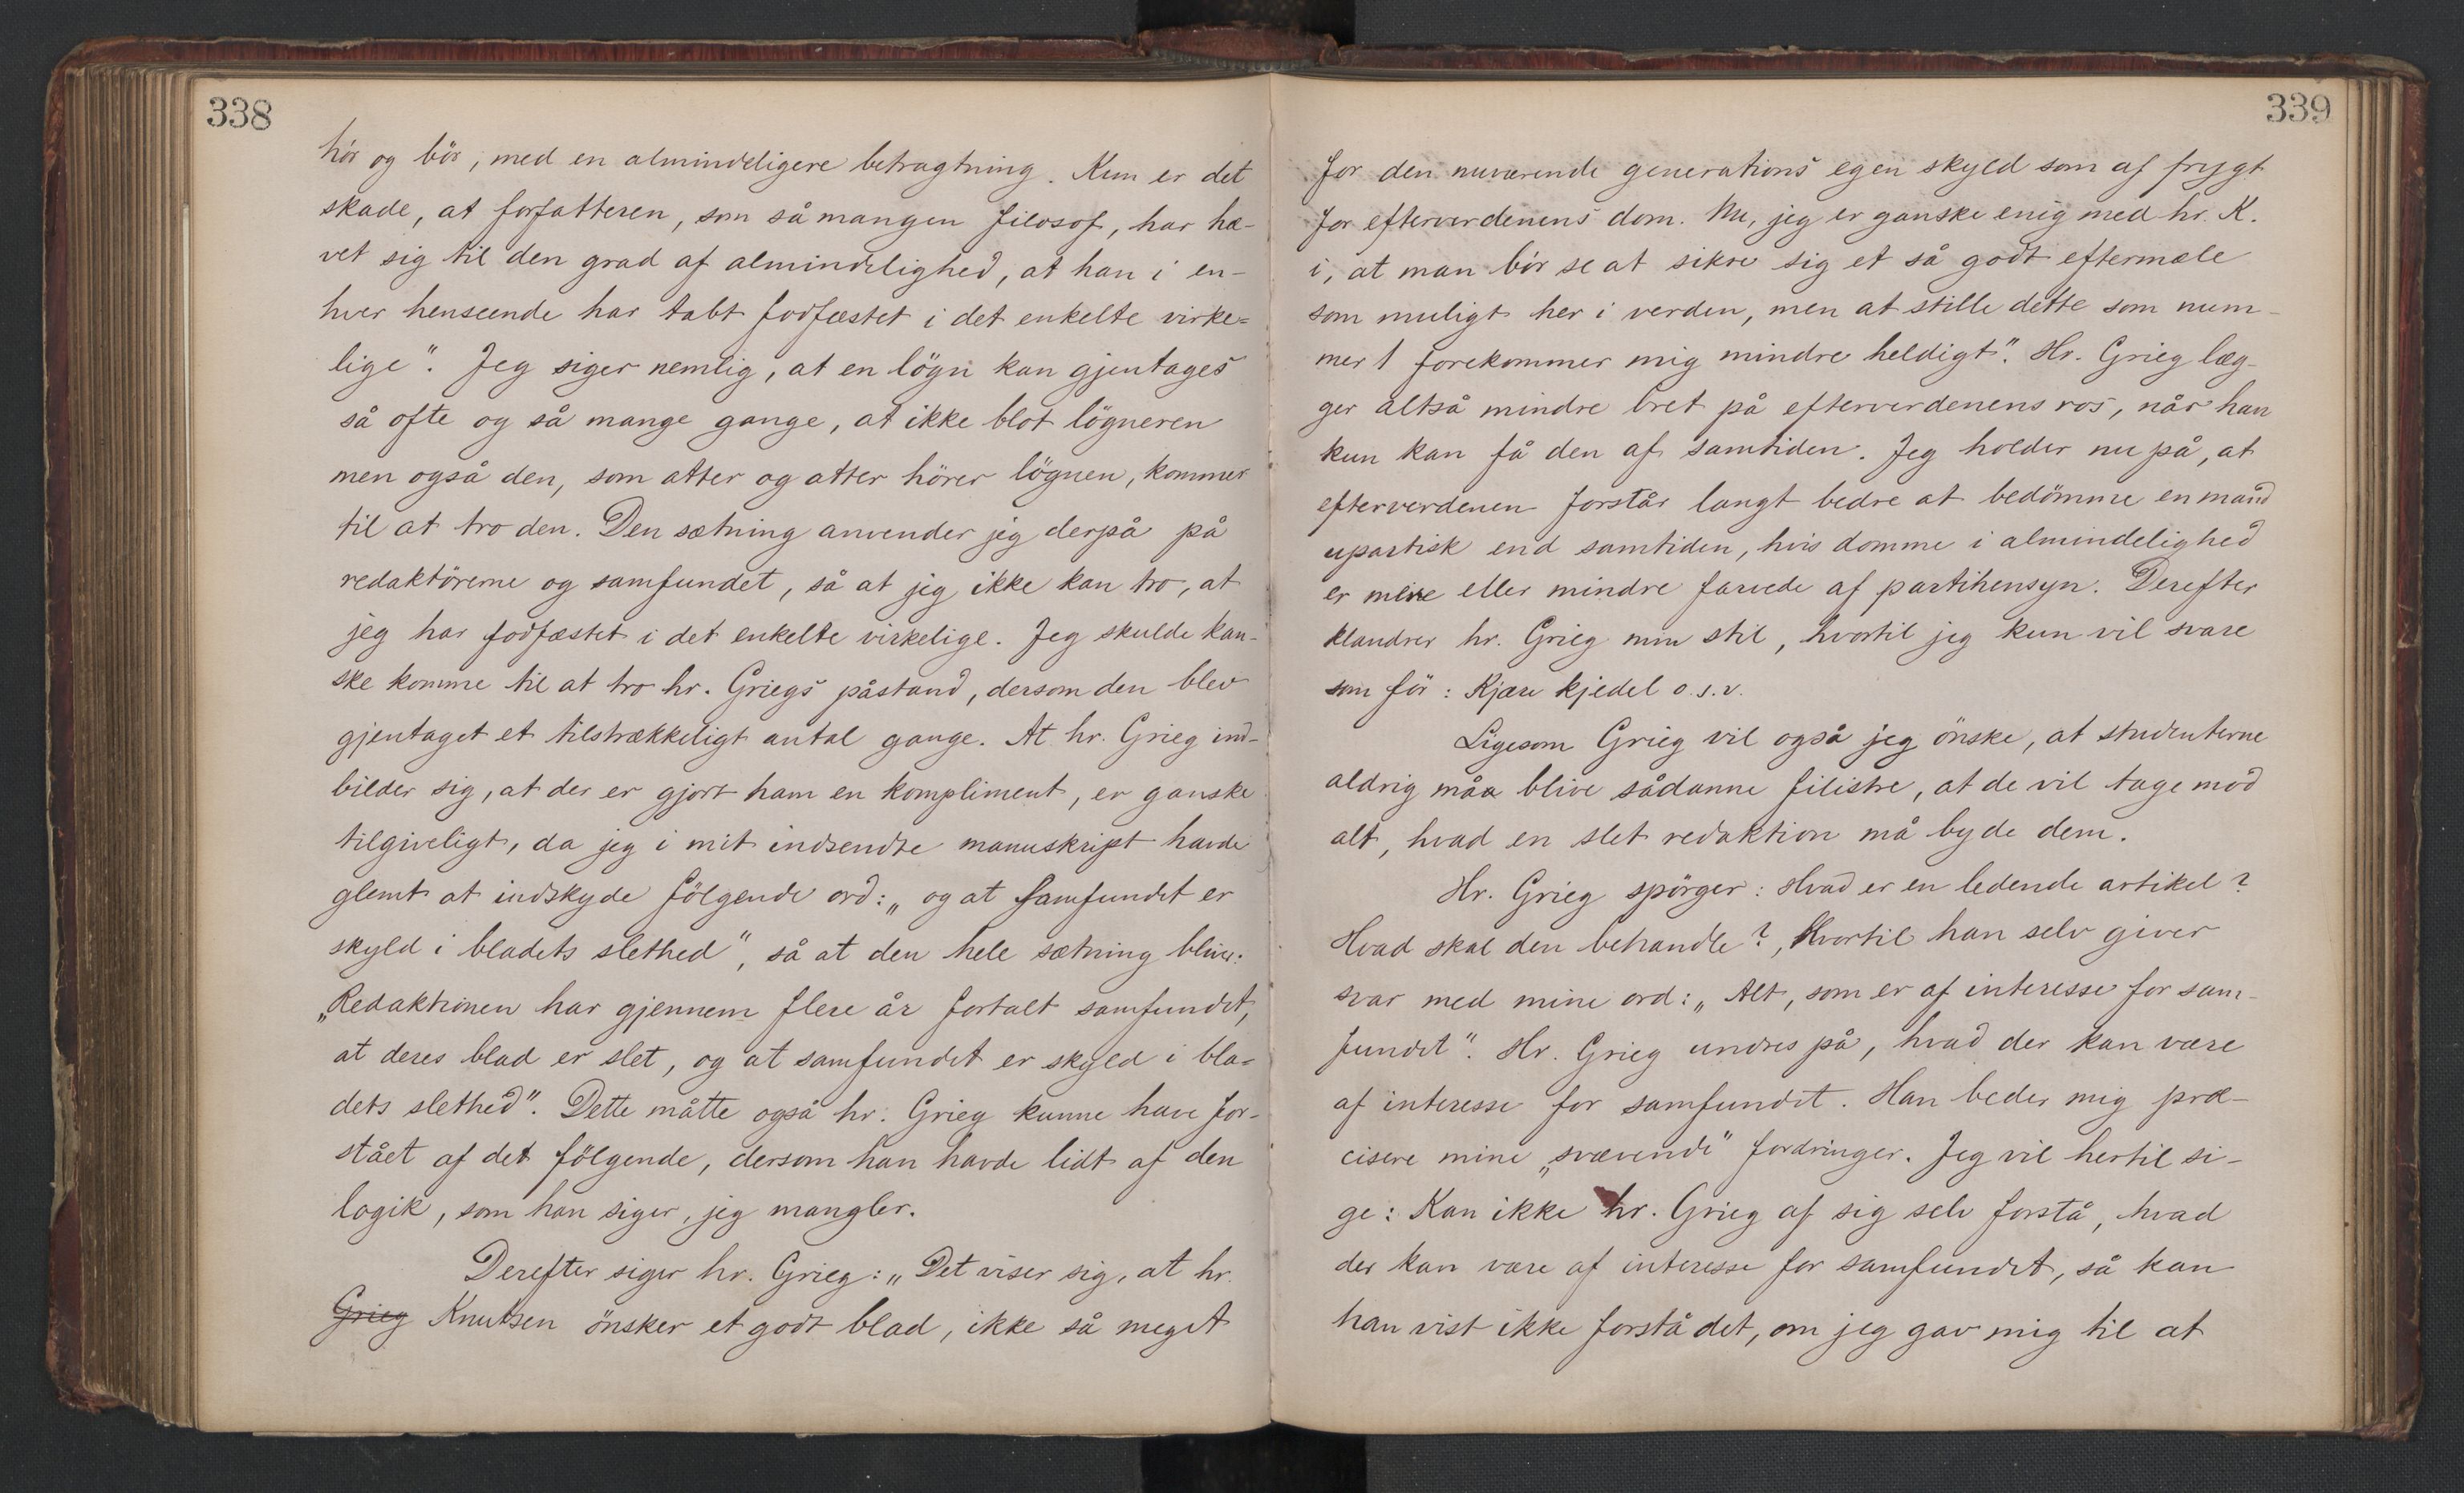 338
hör og bör, med en almindeligere betragtning. Kun er det
skade, at forfatteren, som så mangen filosof, har hæ-
vet sig til den grad af almindelighed, at han i en-
hver henseende har tabt fodfæstet i det enkelte virke=
lige". Jeg siger nemlig, at en lögn kan gjentages
så ofte og så mange gange, at ikke blot lögneren
men også den, som atter og atter hörer lögnen, kommer
til at tro den. Den sætning anvender jeg derpå på
redaktörerne og samfundet, så at jeg ikke kan tro, at
jeg har fodfæstet i det enkelte virkelige. Jeg skulde kan-
ske komme til at tro hr. Griegs påstand, dersom den blev
gjentaget et tilstrækkeligt antal gange. At hr. Grieg ind-
bilder sig, at der er gjort ham en kompliment, er ganske
tilgiveligt, da jeg i mit indsendte manuskript havde
glemt at indskyde fölgende ord: „og at samfundet er
skyld i bladets slethed", så at den hele sætning bliver:
„Redaktionen har gjennem flere år fortalt samfundet,
at deres blad er slet, og at samfundet er skyld i bla=
dets slethed". Dette måtte også hr. Grieg kunne have for-
stået af det fölgende, dersom han havde lidt af den
logik, som han siger, jeg mangler.
Derefter siger hr. Grieg: „Det viser sig, at hr.
Grieg Knutsen önsker et godt blad, ikke så meget
339
for den nuværende generations egen skyld som af frygt
for efterverdenens dom. Nu, jeg er ganske enig med hr. K.
i, at man bör se at sikre sig et så godt eftermæle
som muligt her i verden, men at stille dette som num-
mer 1 forekommer mig mindre heldigt". Hr. Grieg læg-
ger altså mindre bret på efterverdenens ros, når han
kun kan få den af samtiden. Jeg holder nu på, at
efterverdenen forstår langt bedre at bedömme en mand
upartisk end samtiden, hvis domme i almindelighed
er mere eller mindre farvede af partihensyn. Derefter
klandrer hr. Grieg min stil, hvortil jeg kun vil svare
som för: Kjære kjedel o.s.v.
Ligesom Grieg vil også jeg önske, at studenterne
aldrig måa blive sådanne filistre, at de vil tage mod
alt, hvad en slet redaktion må byde dem.
Hr. Grieg spörger: Hvad er en ledende artikel?
Hvad skal den behandle?, Hvortil han selv giver
svar med mine ord: „Alt, som er af interesse for sam-
fundet". Hr. Grieg undres på, hvad der kan være
af interesse for samfundet. Han beder mig præ-
cisere mine „svævende" fordringer. Jeg vil hertil si-
ge: Kan ikke hr. Grieg af sig selv forstå, hvad
der kan være af interesse for samfundet, så kan
han vist ikke forstå det, om jeg gav mig til at